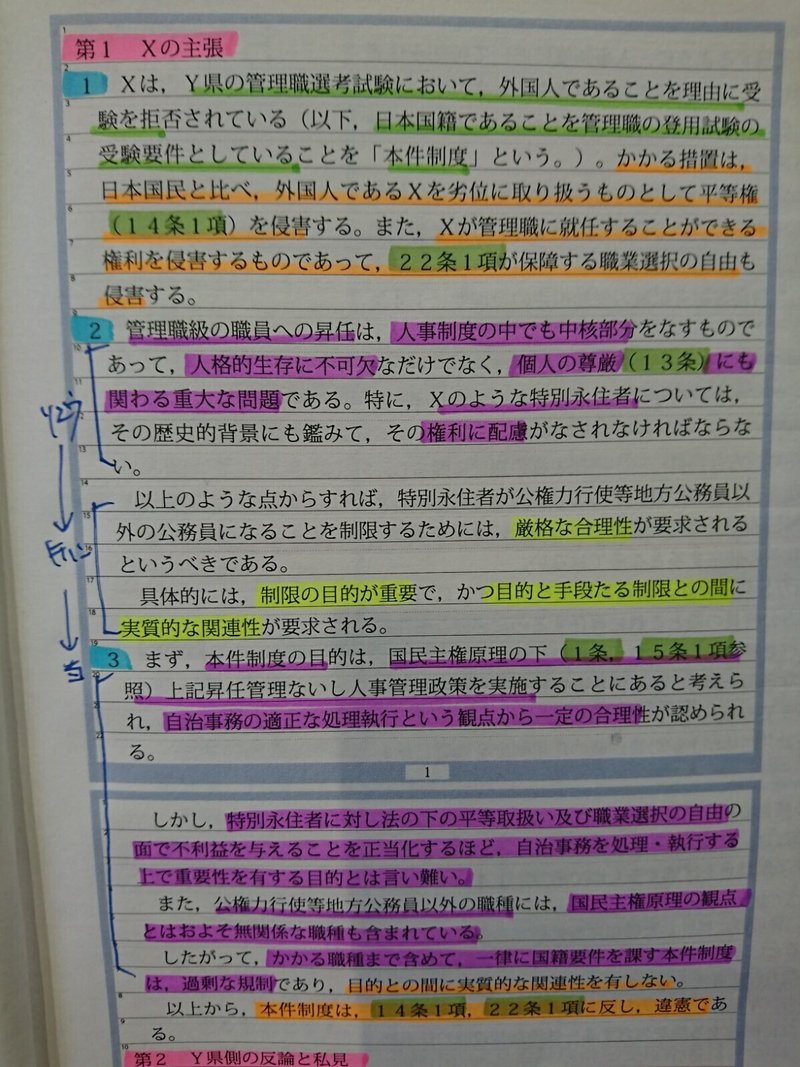 第1 Xの主張
1 Xは，Y県の管理職選考試験において，外国人であることを理由に受
験を拒否されている（以下，日本国籍であることを管理職の登用試験の
受験要件としていることを「本件制度」という。）。かかる措置は，
日本国民と比べ，外国人であるXを劣位に取り扱うものとして平等権
（14条1項）を侵害する。また，Xが管理職に就任することができる
権利を侵害するものであって，22条1項が保障する職業選択の自由も
侵害する。
2 管理職級の職員への昇任は，人事制度の中でも中核部分をなすもので
あって，人格的生存に不可欠なだけでなく，個人の尊厳（13条）にも
関わる重大な問題である。特に，Xのような特別永住者については，
その歴史的背景にも鑑みて，その権利に配慮がなされなければならな
い。
以上のような点からすれば，特別永住者が公権力行使等地方公務員以
外の公務員になることを制限するためには，厳格な合理性が要求される
というべきである。
具体的には，制限の目的が重要で，かつ目的と手段たる制限との間に
実質的な関連性が要求される。
3 まず，本件制度の目的は，国民主権原理の下（1条，15条1項参
照）上記昇任管理ないし人事管理政策を実施することにあると考えら
れ，自治事務の適正な処理執行という観点から一定の合理性が認められ
る。
1
しかし，特別永住者に対し法の下の平等取扱い及び職業選択の自由の
面で不利益を与えることを正当化するほど，自治事務を処理・執行する
上で重要性を有する目的とは言い難い。
また，公権力行使等地方公務員以外の職種には，国民主権原理の観点
とはおよそ無関係な職種も含まれている。
したがって，かかる職種まで含めて，一律に国籍要件を課す本件制度
は，過剰な規制であり，目的との間に実質的な関連性を有しない。
以上から，本件制度は，14条1項，22条1項に反し，違憲であ
る。
第2 Y県側の反論と私見